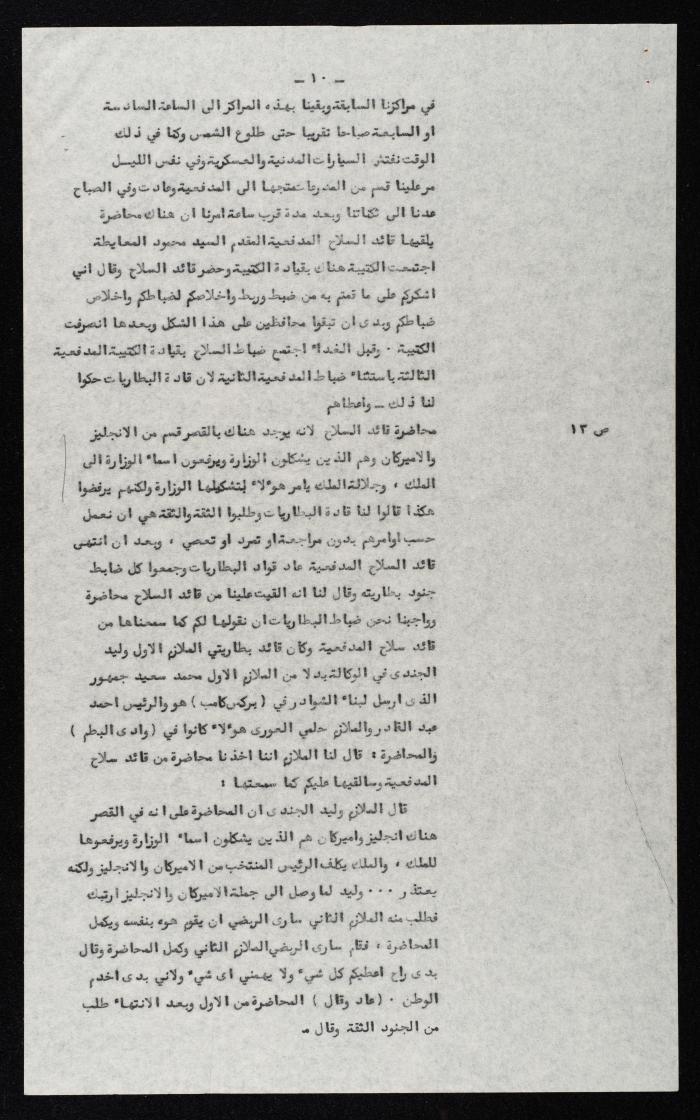 ـ ١٠ ـ
في مراكزنا السابقة وبقينا بهذه المراكز الى الساعة السادسة
او السابعة صباحا تقريبا حتى طلوع الشمس وكنا في ذلك
الوقت نفتش السيارات المدنية والعسكرية وفي نفس الليل
مر علينا قسم من المدرعات متجها الى المدفعية وعادت وفي الصباح
عدنا الى ثكناتنا وبعد مدة قرب ساعة امرنا ان هناك محاضرة
يلقيها قائد السلاح المدفعية المقدم السيد محمود المعايطة
اجتمعت الكتيبة هناك بقيادة الكتيبة وحضر قائد السلاح وقال اني
اشكركم على ما تمتم به من ضبط وربط واخلاصكم لضباطكم واخلاص
ضباطكم وبدى ان تبقوا محافظين على هذا الشكل وبعدها انصرفت
الكتيبة ٠ وقبل الغداء اجتمع ضباط السلاح بقيادة الكتيبة المدفعية
الثالثة باستثناء ضباط المدفعية الثانية لان قادة البطاريات حكوا
لنا ذلك ـ واعطاهم
محاضرة قائد السلاح لانه يوجد هناك بالقصر قسم من الانجليز
ص ١٣
والاميركان وهم الذين يشكلون الوزارة ويرفعون اسماء الوزارة الى
الملك ، وجلالة الملك يامر هوءلاء بتشكيلها الوزارة ولكنهم يرفضوا
هكذا قالوا لنا قادة البطاريات وطلبوا الثقة والثقة هي ان نعمل
حسب اوامرهم بدون مراجعة او تمرد او تعصي ، وبعد ان انتهى
قائد السلاح المدفعية عاد قواد البطاريات وجمعوا كل ضابط
جنود بطاريته وقال لنا انه القيت علينا من قائد السلاح محاضرة
وواجبنا نحن ضباط البطاريات ان نقولها لكم كما سمعناها من
قائد سلاح المدفعية وكان قائد بطاريتي الملازم الاول وليد
الجندى في الوكالة بدلا من الملازم الاول محمد سعيد جمهور
الذى ارسل لبناء الشوادر في ( بركس كامب ) هو والرئيس احمد
عبد القادر والملازم حلمي العورى هوءلاء كانوا في ( وادى البطم )
والمحاضرة : قال لنا الملازم اننا اخذنا محاضرة من قائد سلاح
المدفعية وسالقيها عليكم كما سمعتها :
قال الملازم وليد الجندى ان المحاضرة على انه في القصر
هناك انجليز واميركان هم الذين يشكلون اسماء الوزارة ويرفعوها
للملك ، والملك يكلف الرئيس المنتخب من الاميركان والانجليز ولكنه
يعتذر ٠٠٠ وليد لما وصل الى جملة الاميركان والانجليز ارتبك
فطلب منه الملازم الثاني سارى الربضي ان يقوم هوه بنفسه ويكمل
المحاضرة ، فقام سارى الربضي الملازم الثاني وكمل المحاضرة وقال
بدى راح اعطيكم كل شيء ولا يهمني اى شيء ولاني بدى اخدم
الوطن ٠ ( عاد وقال ) المحاضرة من الاول وبعد الانتهاء طلب
من الجنود الثقة وقال ـ